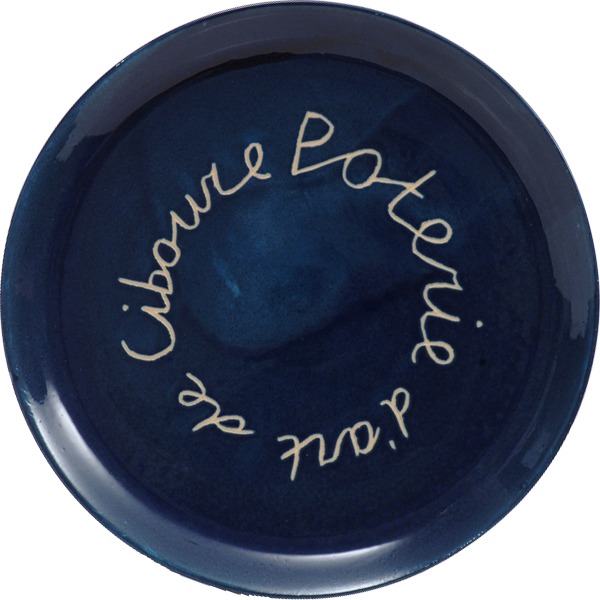 Poterie d'art de Ciboure